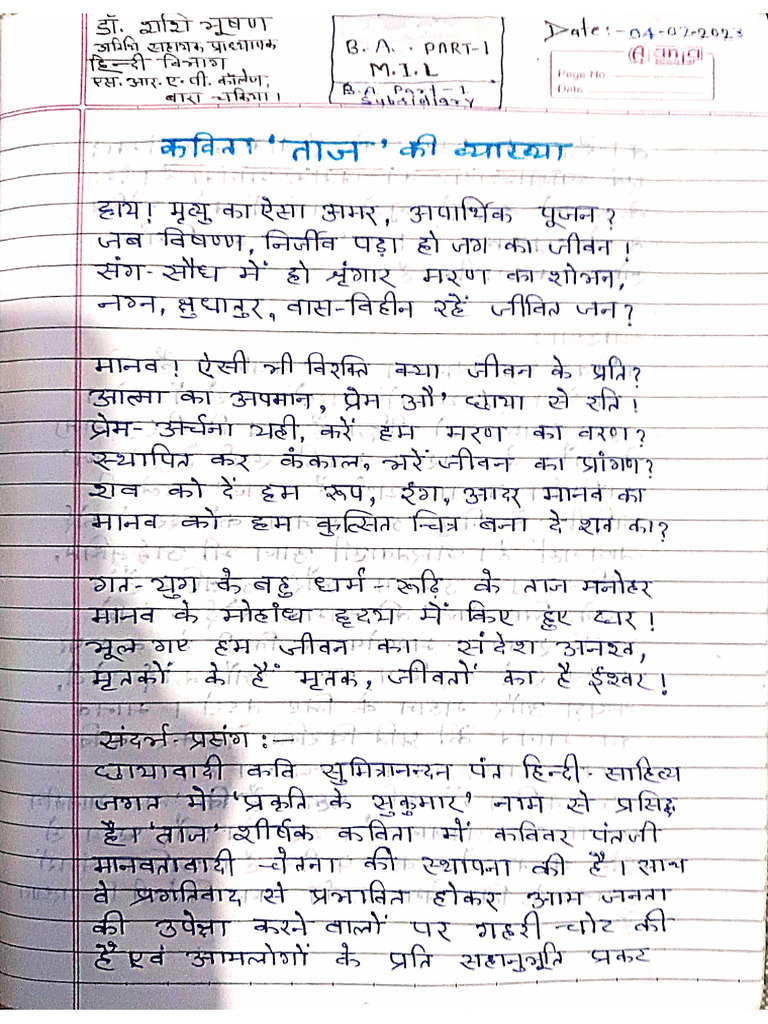 डॉ. शशि भूषण
अतिथि सहायक प्राध्यापक
हिन्दी विभाग
एस. आर. ए. पी. कॉलेज,
बारा चकिया।
B.A. PART-1
M.I.L
B.A. Part-1
Subsidiary
Date:- 04-02-2023
Page No
Date
कविता 'ताज' की व्याख्या
हाय! मृत्यु का ऐसा अमर, अपार्थिक पूजन?
जब विषण्ण, निर्जीव पड़ा हो जग का जीवन!
संग-सौध में हो श्रृंगार मरण का शोभन,
नग्न, क्षुधातुर, वास-विहीन रहें जीवित जन?
मानव! ऐसी भी विरक्ति क्या जीवन के प्रति?
आत्मा का अपमान, प्रेत औ' छाया से रति!
प्रेम-अर्चना यही, करें हम मरण का वरण?
स्थापित कर कंकाल, भरें जीवन का प्रांगण?
शव को दें हम रूप, रंग, आदर मानव का
मानव को हम कुत्सित चित्र बना दे शव का?
गत-युग के बहु धर्म-रूढ़ि के ताज मनोहर
मानव के मोहांध हृदय में किए हुए घर!
भूल गए हम जीवन का संदेश अनश्वर,
मृतकों के हैं मृतक, जीवतों का है ईश्वर!
संदर्भ-प्रसंग:-
छायावादी कवि सुमित्रानन्दन पंत हिन्दी-साहित्य
जगत में 'प्रकृति के सुकुमार' नाम से प्रसिद्ध
है। 'ताज' शीर्षक कविता में कविवर पंतजी
मानवतावादी चेतना की स्थापना की है। साथ
वे प्रगतिवाद से प्रभावित होकर आम जनता
की उपेक्षा करने वालों पर गहरी चोट की
है एवं आमलोगों के प्रति सहानुभूति प्रकट